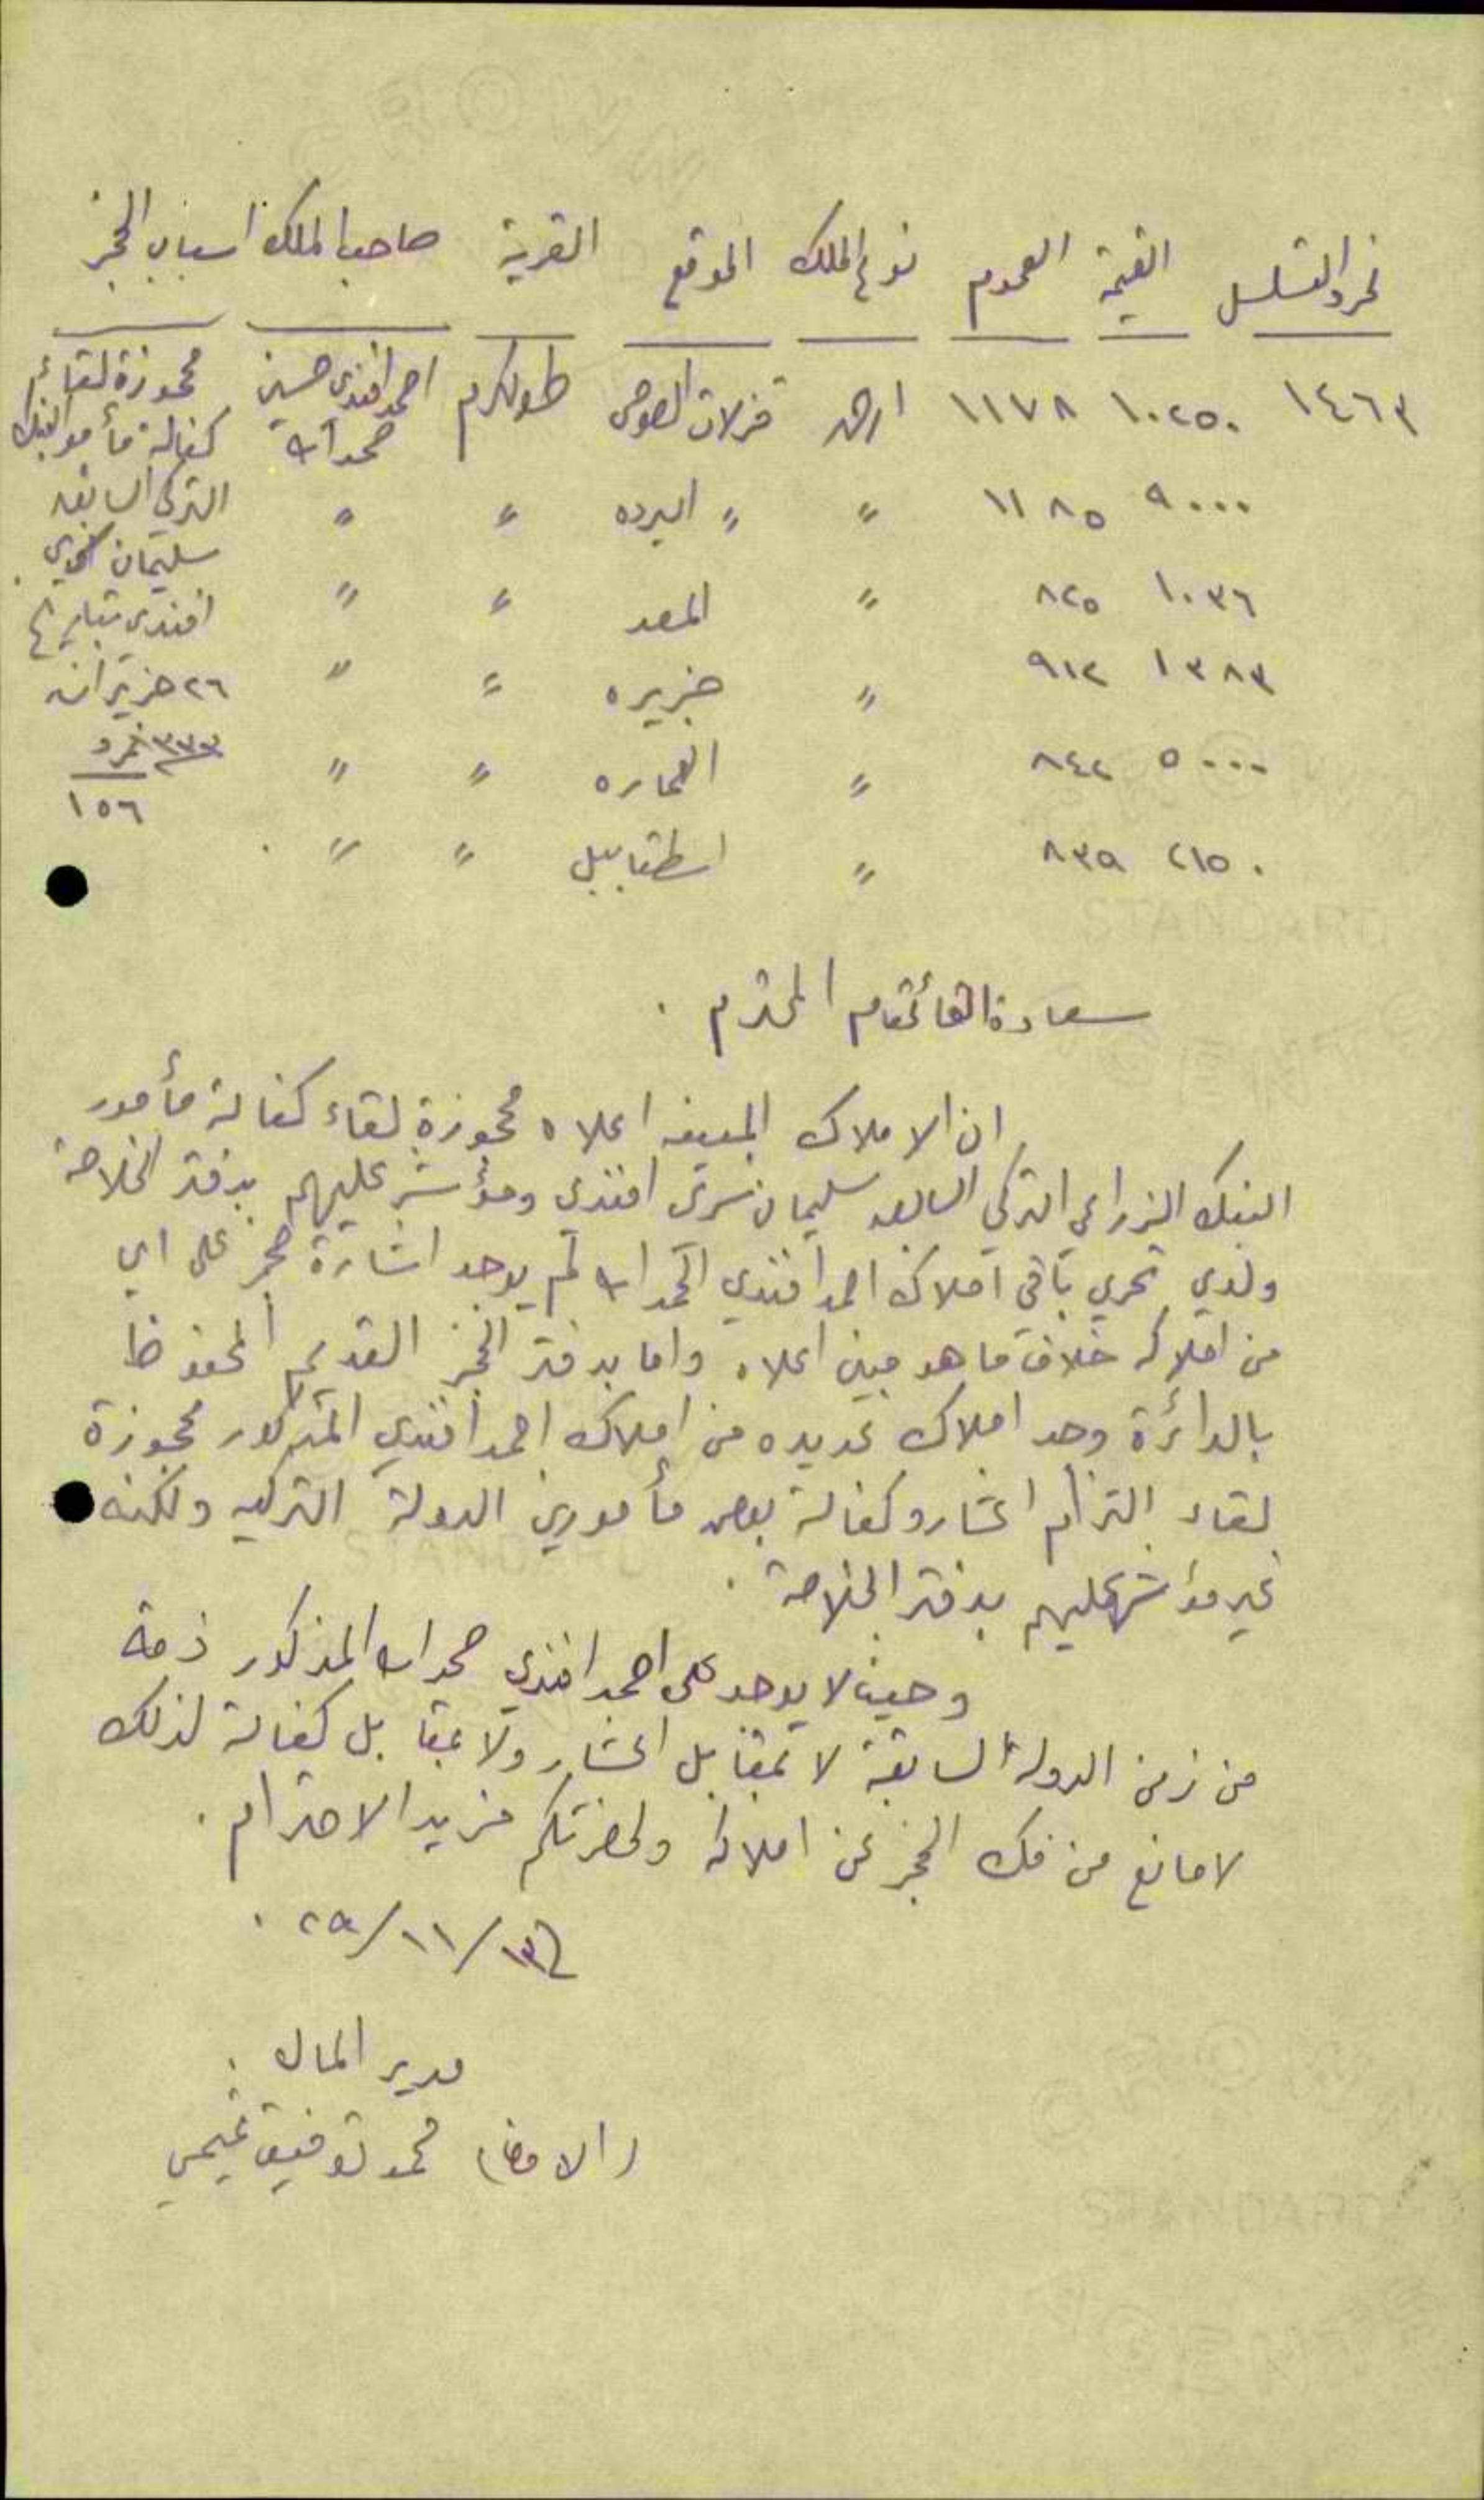 نمرو التسلسل القيمة العموم نوع الملك الموقع القرية صاحب الملك اسباب الحجز
١٤٦٣ ١٠٢٥٠ ١١٧٨ ارض قزلات الصوص طولكرم احمد افندي حسين حمدالله محجوزة لقاء كفالة مأمور البنك
٩٠٠٠ ١١٨٥ " " البرده " " التركي السابق
سليمان
١٠٣٦ ٨٢٥ " " " افندي بتاريخ
١٣٨٣ ٩١٢ " جزيره " " ٢٦ حزيران
٥٠٠٠ ٨٤٢ " العماره " " ٣٣٣ نمرو
١٥٦
٢١٥٠ ٨٣٩ " اسطقابيل " "
سعادة القائمقام المحترم .
ان الاملاك المبينه اعلاه محجوزة لقاء كفالة مأمور
البنك الزراعي التركي السابق سليمان سري افندي ومؤشر عليهم بدفتر الخلاصة
ولدي تحري باقي املاك احمد افندي الحمدالله لم يوجد اشارة حجز على اي
من املاكه خلاف ما هو مبين اعلاه واما بدفتر الحجز القديم المحفوظ
بالدائرة وجد املاك عديده من املاك احمد افندي المذكور محجوزة
لقاء التزام اعشار وكفالة بعض مأمورين الدولة التركيه ولكنه
غير مؤشر عليهم بدفتر الخلاصة .
وحيث لا يوجد على احمد افندي حمدالله المذكور ذمة
من زمن الدولة السابقة لا بمقابل اعشار ولا بمقابل كفالة لذلك
لا مانع من فك الحجز عن املاكه ولحضرتكم مزيد الاحترام .
١١/٢٩ .
مدير المال .
(الامضا) محمد توفيق